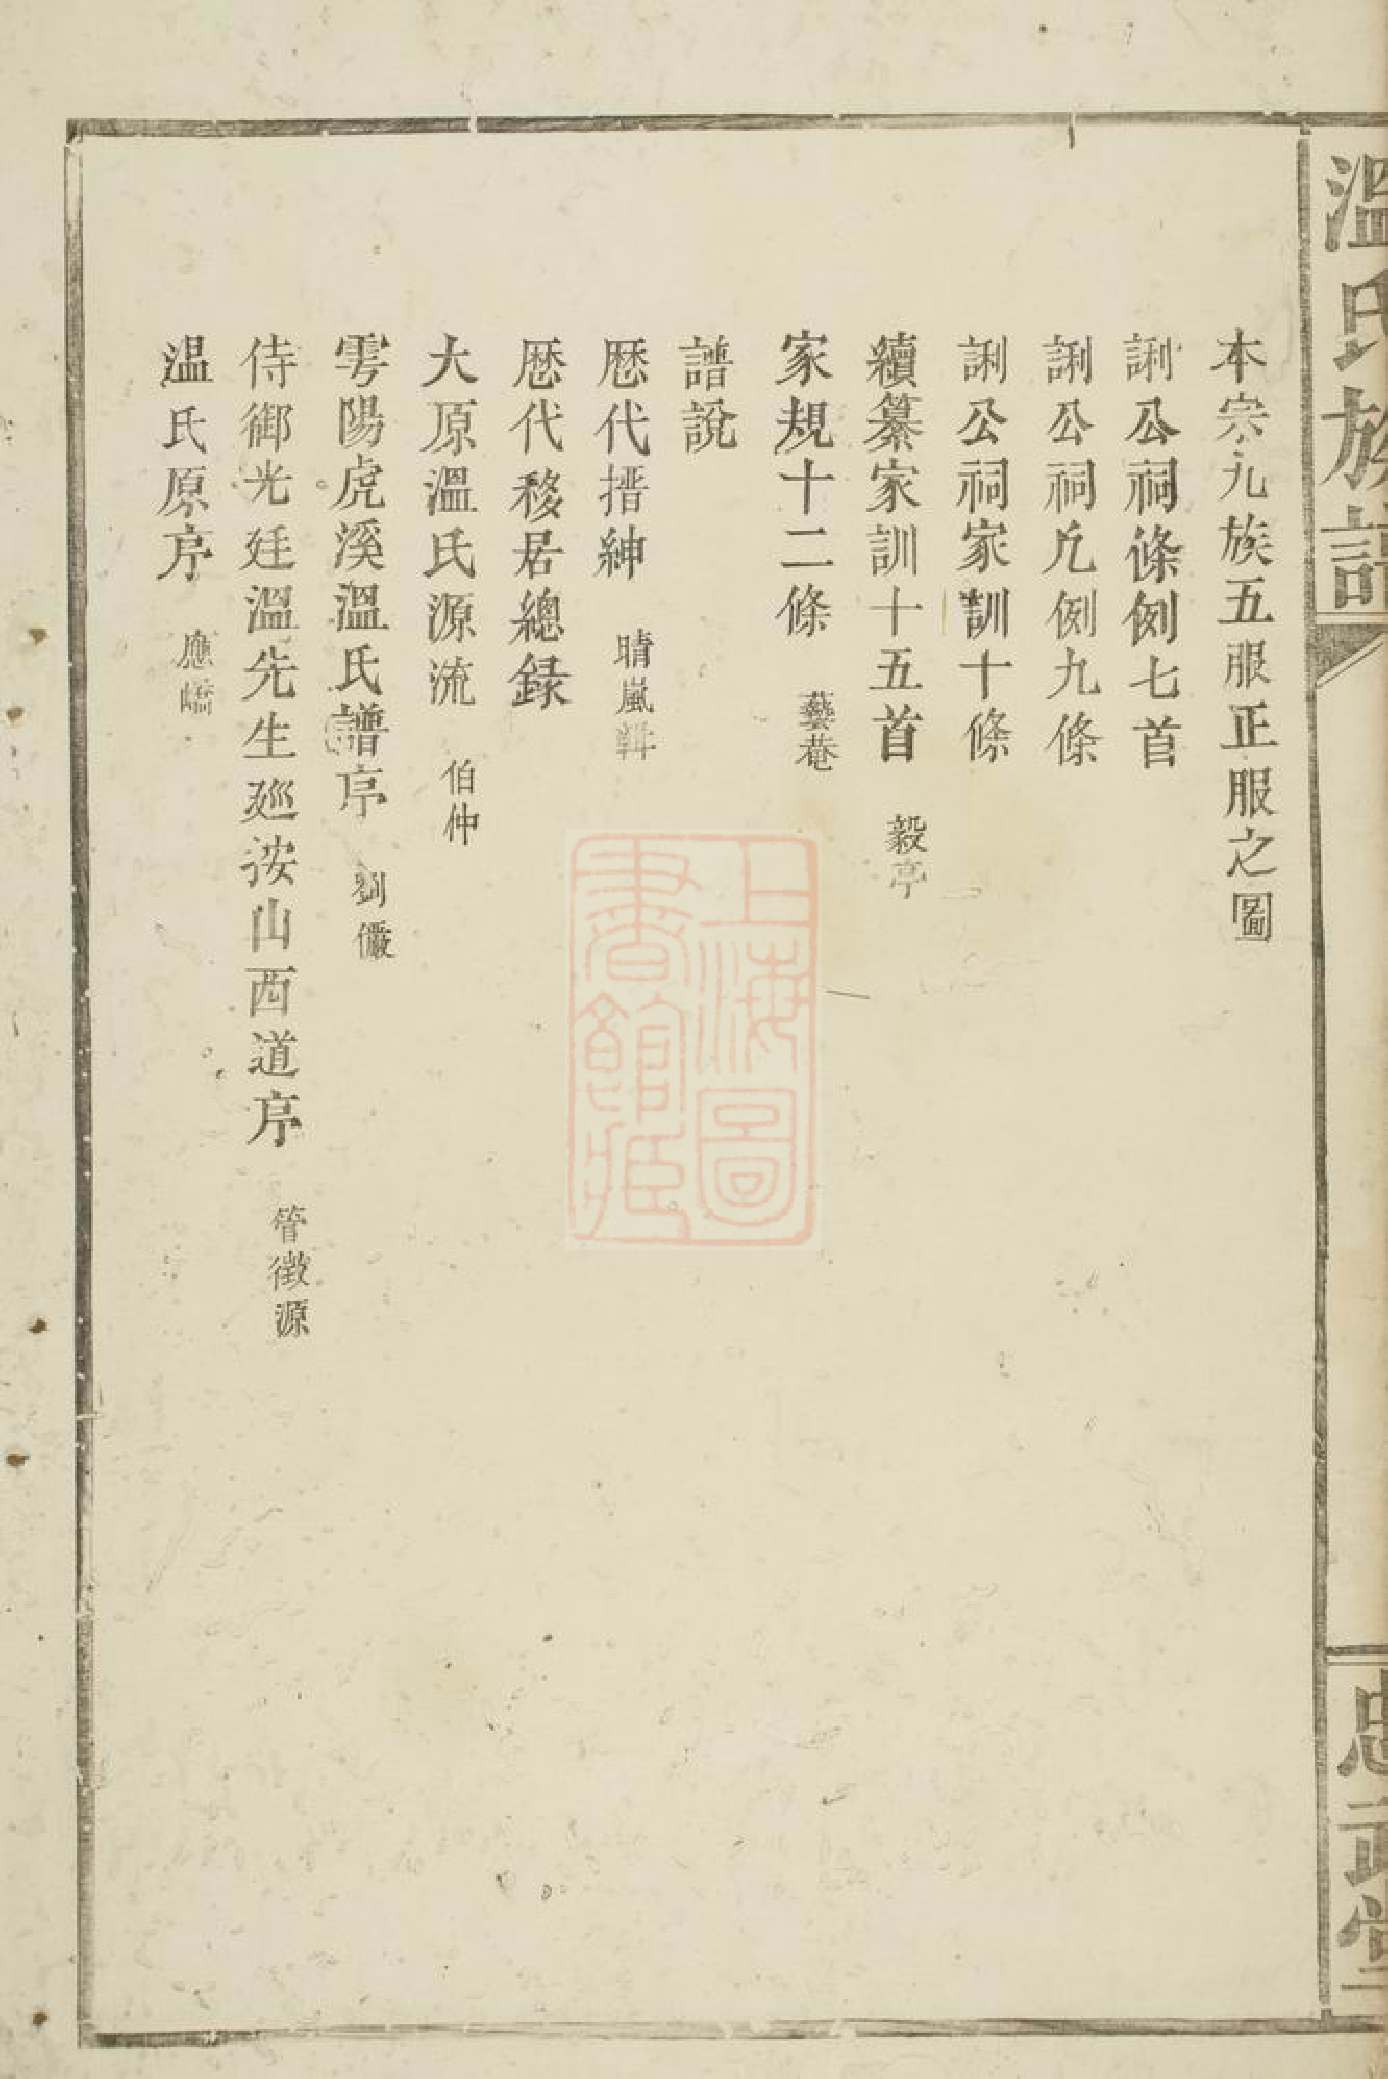 溫氏族譜
忠武堂
本宗九族五服正服之圖
誗公祠條例七首
誗公祠凡例九條
誗公祠家訓十條
續纂家訓十五首 毅亭
家規十二條 藝菴
譜說
歷代搢紳 晴嵐輯
歷代移居總録
大原溫氏源流 伯仲
雩陽虎溪溫氏譜序 劉儼
侍御光廷溫先生廵按山西道序 管徵源
溫氏原序 應嶠
上海圖書館藏